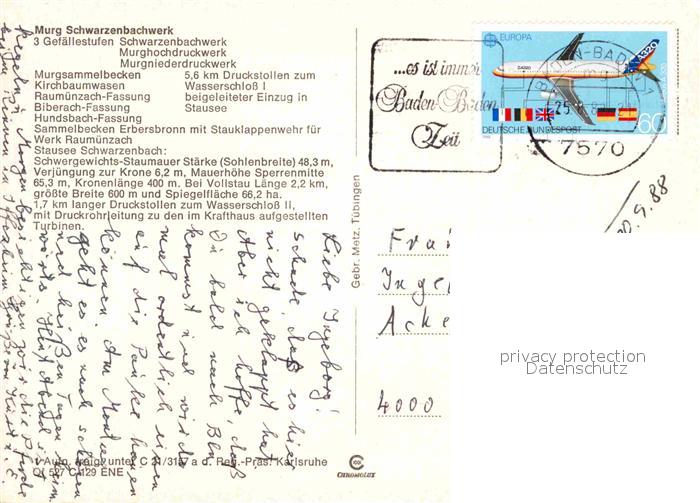 Murg Schwarzenbachwerk
3 Gefällestufen Schwarzenbachwerk
Murghochdruckwerk
Murgniederdruckwerk
Murgsammelbecken 5,6 km Druckstollen zum
Kirchbaumwasen Wasserschloß I
Raumünzach-Fassung beigeleiteter Einzug in
Biberach-Fassung Stausee
Hundsbach-Fassung
Sammelbecken Erbersbronn mit Stauklappenwehr für
Werk Raumünzach
Stausee Schwarzenbach:
Schwergewichts-Staumauer Stärke (Sohlenbreite) 48,3 m,
Verjüngung zur Krone 6,2 m, Mauerhöhe Sperrenmitte
65,3 m, Kronenlänge 400 m. Bei Vollstau Länge 2,2 km,
größte Breite 600 m und Spiegelfläche 66,2 ha.
1,7 km langer Druckstollen zum Wasserschloß II,
mit Druckrohrleitung zu den im Krafthaus aufgestellten
Turbinen.
Liebe Ingeborg!
schade, daß es hier
nicht geklappt hat.
Aber ich hoffe, daß
Du bald nach Bln
kommst und wir da
mal ordentlich einen
auf die Pauke hauen
können. Am Montag
geht es nach
und heißen Tagen
Heut Abend ist
Kegeln. Morgen
Gebr. Metz, Tübingen
EUROPA
DA320
A320
DEUTSCHE BUNDESPOST
60
...es ist immer
Baden-Baden
Zeit
BADEN-BADEN 1
7570
20.9.88
Frau
Inge
Acke
4000
privacy protection
Datenschutz
Autr. freig. unter C 21/3187 a d. Reg.-Präs. Karlsruhe
Df 527 C 129 ENE
CHROMOLUX